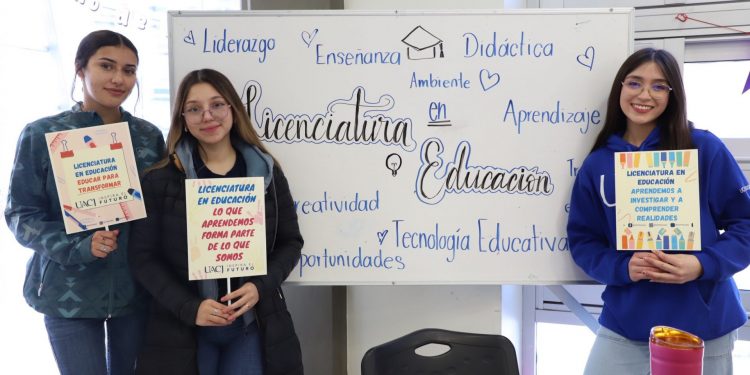 Liderazgo
Enseñanza
Didáctica
Ambiente
Licenciatura
en
Educación
Aprendizaje
reatividad
Tecnología Educativa
portunidades
LICENCIATURA
EN EDUCACIÓN
EDUCAR PARA
TRANSFORMAR
UACJ
LICENCIATURA
EN EDUCACIÓN
LO QUE
APRENDEMOS
FORMA PARTE
DE LO QUE
SOMOS
UACJ
LICENCIATURA EN
EDUCACIÓN
APRENDEMOS A
INVESTIGAR Y A
COMPRENDER
REALIDADES